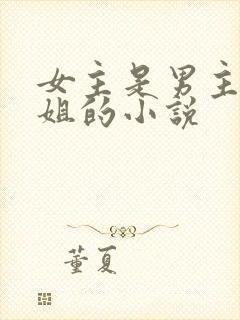 女主是男主
姐的小説
董夏